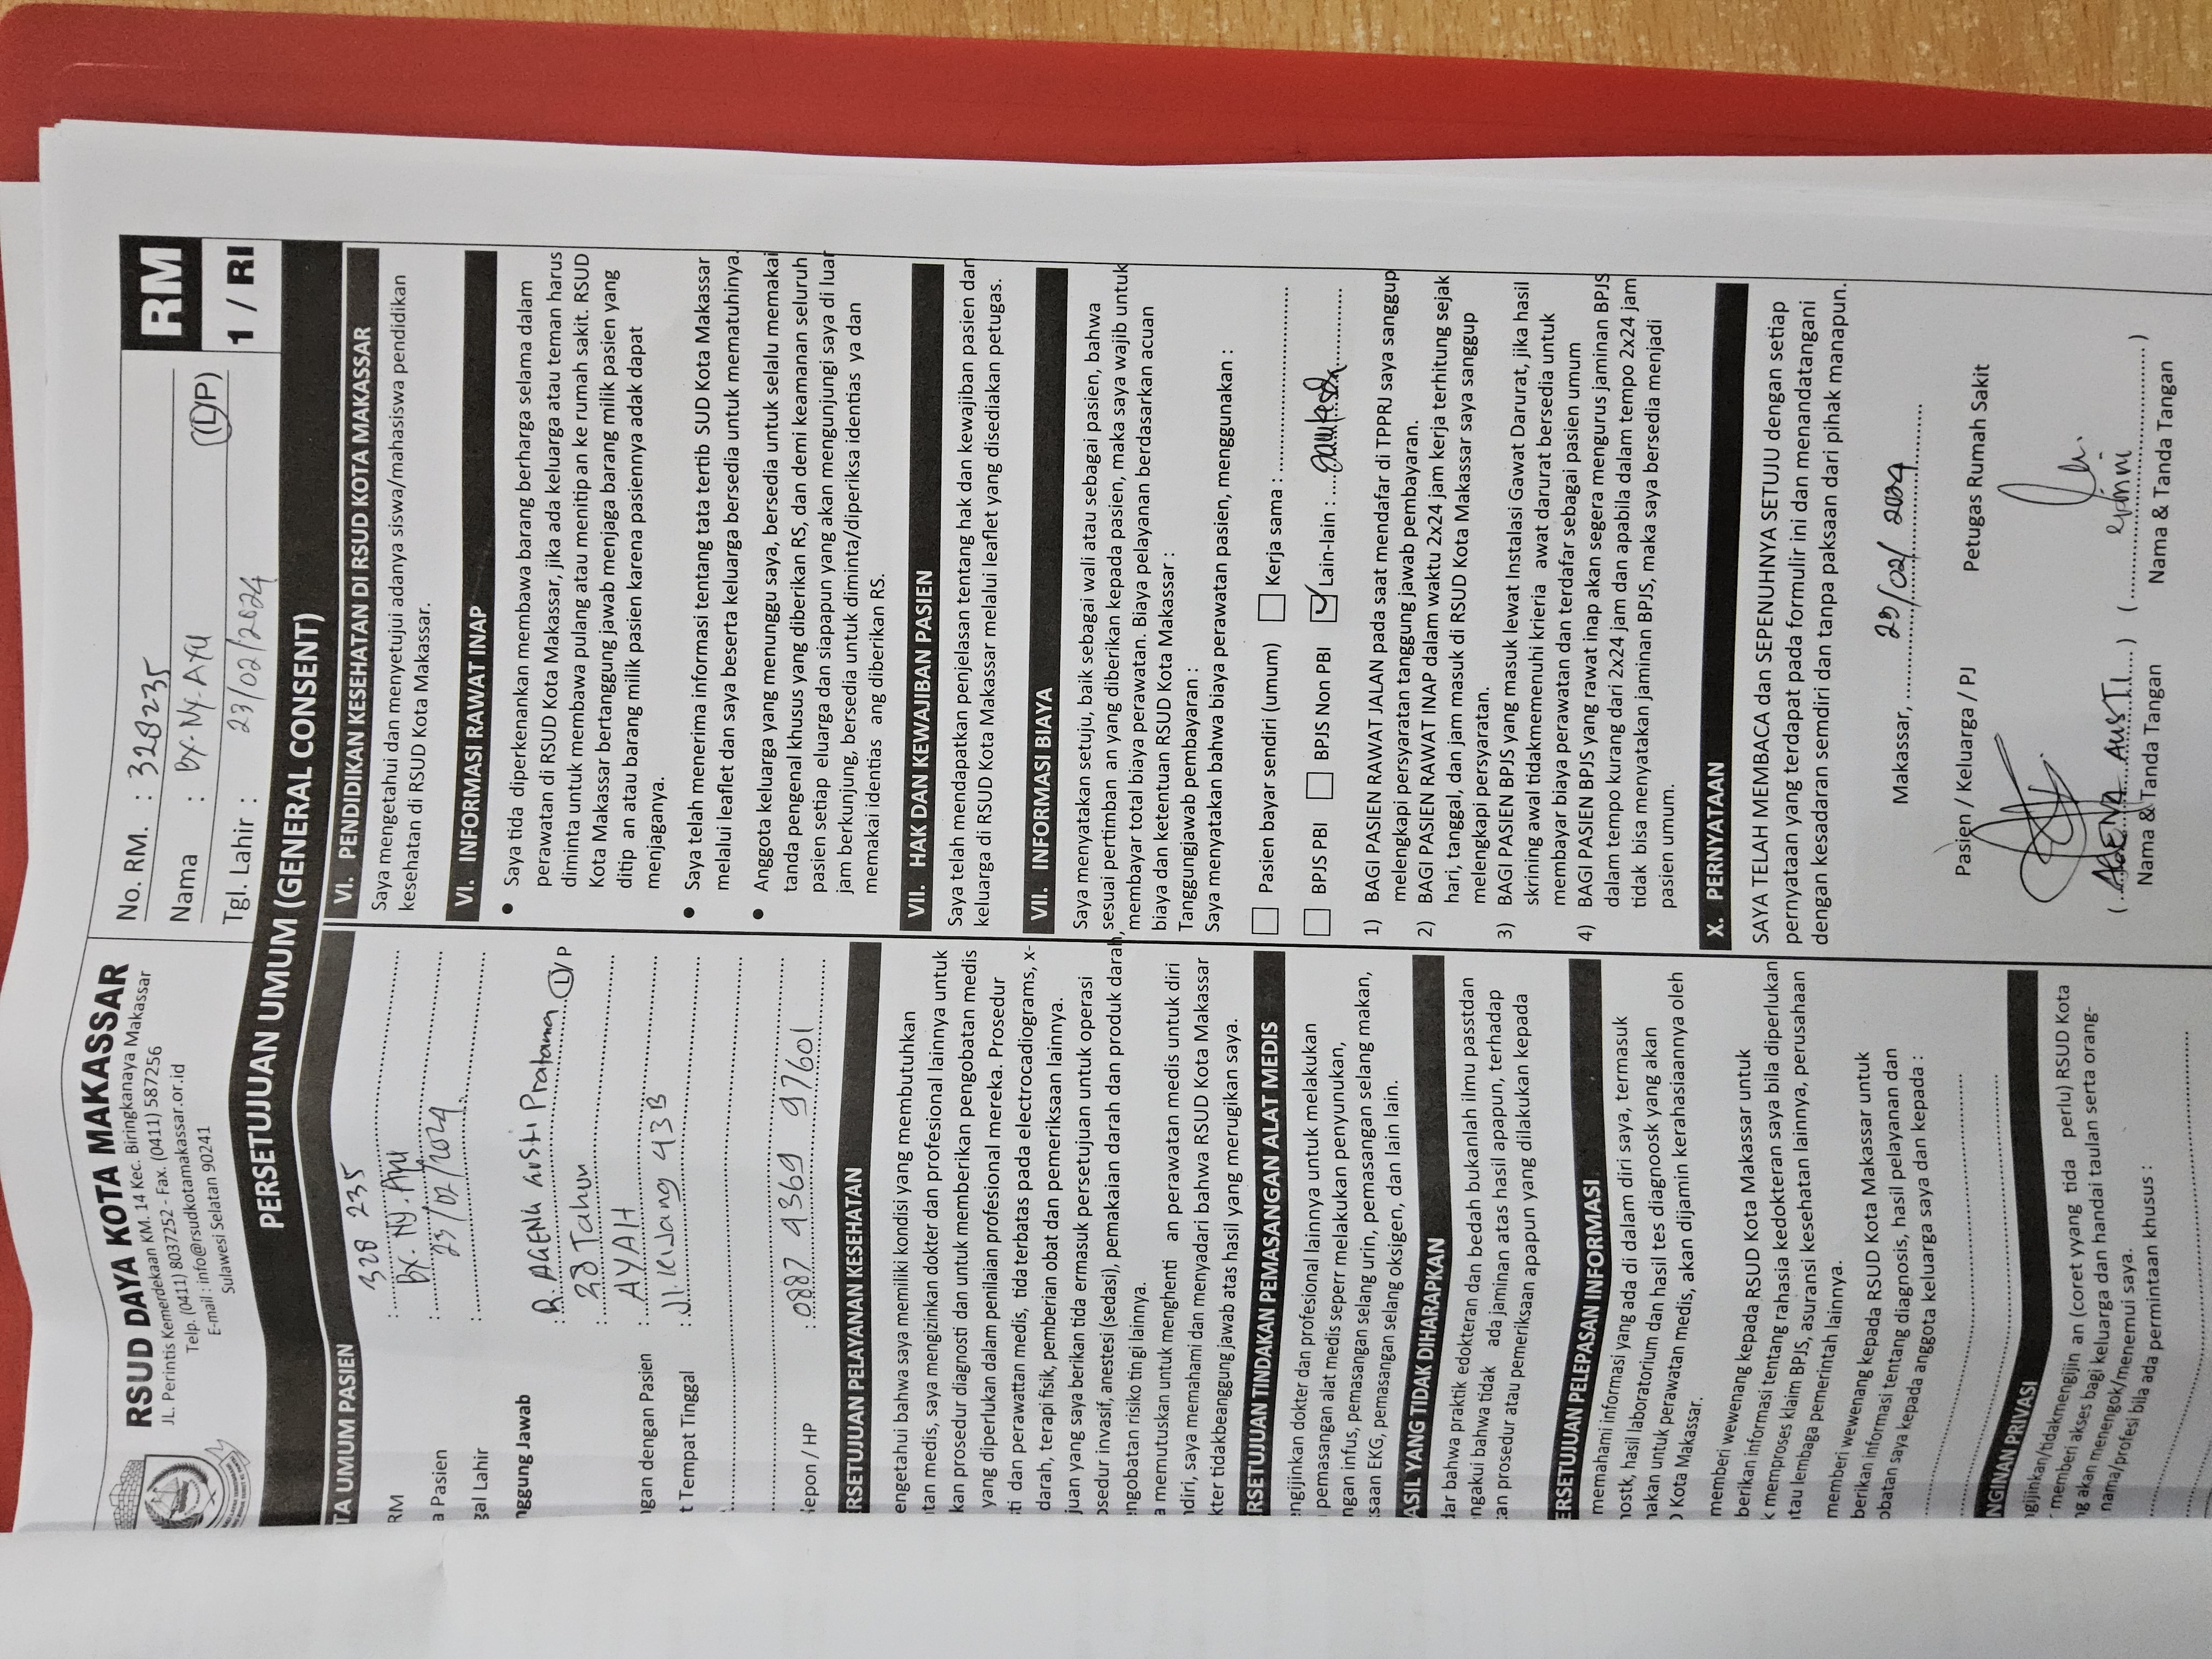 RSUD DAYA KOTA MAKASSAR
JL. Perintis Kemerdekaan KM. 14 Kec. Biringkanaya Makassar
Telp. (0411) 8037252 - Fax. (0411) 587256
E-mail : info@rsudkotamakassar.or.id
Sulawesi Selatan 90241
No. RM. : 328235
Nama : By. Ny. Ayu (L/P)
Tgl. Lahir : 23/02/2024
RM
1 / RI
PERSETUJUAN UMUM (GENERAL CONSENT)
TA UMUM PASIEN
RM : 328 235
a Pasien : By. Ny. Ayu
gal Lahir : 23/02/2024
nggung Jawab
: R. AGENG GUSTI Pratama L/P
: 28 Tahun
ngan dengan Pasien : AYAH
t Tempat Tinggal : Jl. Kijang 43 B
lepon / HP : 0887 4369 97601
RSETUJUAN PELAYANAN KESEHATAN
engetahui bahwa saya memiliki kondisi yang membutuhkan
tan medis, saya mengizinkan dokter dan profesional lainnya untuk
kan prosedur diagnosti dan untuk memberikan pengobatan medis
yang diperlukan dalam penilaian profesional mereka. Prosedur
ti dan perawattan medis, tida terbatas pada electrocadiograms, x-
darah, terapi fisik, pemberian obat dan pemeriksaan lainnya.
juan yang saya berikan tida ermasuk persetujuan untuk operasi
osedur invasif, anestesi (sedasi), pemakaian darah dan produk darah,
engobatan risiko tingi lainnya.
a memutuskan untuk menghenti an perawatan medis untuk diri
ndiri, saya memahami dan menyadari bahwa RSUD Kota Makassar
kter tidakbeanggung jawab atas hasil yang merugikan saya.
RSETUJUAN TINDAKAN PEMASANGAN ALAT MEDIS
engijinkan dokter dan profesional lainnya untuk melakukan
pemasangan alat medis seperr melakukan penyunukan,
ngan infus, pemasangan selang urin, pemasangan selang makan,
saan EKG, pemasangan selang oksigen, dan lain lain.
ASIL YANG TIDAK DIHARAPKAN
dar bahwa praktik edokteran dan bedah bukanlah ilmu passtdan
engakui bahwa tidak ada jaminan atas hasil apapun, terhadap
an prosedur atau pemeriksaan apapun yang dilakukan kepada
ERSETUJUAN PELEPASAN INFORMASI
memahami informasi yang ada di dalam diri saya, termasuk
nostk, hasil laboratorium dan hasil tes diagnoosk yang akan
nakan untuk perawatan medis, akan dijamin kerahasiaannya oleh
Kota Makassar.
memberi wewenang kepada RSUD Kota Makassar untuk
berikan informasi tentang rahasia kedokteran saya bila diperlukan
k memproses klaim BPJS, asuransi kesehatan lainnya, perusahaan
tau lembaga pemerintah lainnya.
memberi wewenang kepada RSUD Kota Makassar untuk
berikan informasi tentang diagnosis, hasil pelayanan dan
obatan saya kepada anggota keluarga saya dan kepada :
NGINAN PRIVASI
gijinkan/tidakmengijin an (coret yvang tida perlu) RSUD Kota
memberi akses bagi keluarga dan handai taulan serta orang-
ng akan menengok/menemui saya.
nama/profesi bila ada permintaan khusus :
VI. PENDIDIKAN KESEHATAN DI RSUD KOTA MAKASSAR
Saya mengetahui dan menyetujui adanya siswa/mahasiswa pendidikan
kesehatan di RSUD Kota Makassar.
VI. INFORMASI RAWAT INAP
• Saya tida diperkenankan membawa barang berharga selama dalam
perawatan di RSUD Kota Makassar, jika ada keluarga atau teman harus
diminta untuk membawa pulang atau menitip an ke rumah sakit. RSUD
Kota Makassar bertanggung jawab menjaga barang milik pasien yang
ditip an atau barang milik pasien karena pasiennya adak dapat
menjaganya.
• Saya telah menerima informasi tentang tata tertib SUD Kota Makassar
melalui leaflet dan saya beserta keluarga bersedia untuk mematuhinya.
• Anggota keluarga yang menunggu saya, bersedia untuk selalu memakai
tanda pengenal khusus yang diberikan RS, dan demi keamanan seluruh
pasien setiap eluarga dan siapapun yang akan mengunjungi saya di luar
jam berkunjung, bersedia untuk diminta/diperiksa identias ya dan
memakai identias ang diberikan RS.
VII. HAK DAN KEWAJIBAN PASIEN
Saya telah mendapatkan penjelasan tentang hak dan kewajiban pasien dan
keluarga di RSUD Kota Makassar melalui leaflet yang disediakan petugas.
VII. INFORMASI BIAYA
Saya menyatakan setuju, baik sebagai wali atau sebagai pasien, bahwa
sesuai pertimban an yang diberikan kepada pasien, maka saya wajib untuk
membayar total biaya perawatan. Biaya pelayanan berdasarkan acuan
biaya dan ketentuan RSUD Kota Makassar :
Tanggungjawab pembayaran :
Saya menyatakan bahwa biaya perawatan pasien, menggunakan :
Pasien bayar sendiri (umum) Kerja sama :
BPJS PBI BPJS Non PBI ✓ Lain-lain :
1) BAGI PASIEN RAWAT JALAN pada saat mendafar di TPPRJ saya sanggup
melengkapi persyaratan tanggung jawab pembayaran.
2) BAGI PASIEN RAWAT INAP dalam waktu 2x24 jam kerja terhitung sejak
hari, tanggal, dan jam masuk di RSUD Kota Makassar saya sanggup
melengkapi persyaratan.
3) BAGI PASIEN BPJS yang masuk lewat Instalasi Gawat Darurat, jika hasil
skrining awal tidakmemenuhi krieria awat darurat bersedia untuk
membayar biaya perawatan dan terdafar sebagai pasien umum
4) BAGI PASIEN BPJS yang rawat inap akan segera mengurus jaminan BPJS
dalam tempo kurang dari 2x24 jam dan apabila dalam tempo 2x24 jam
tidak bisa menyatakan jaminan BPJS, maka saya bersedia menjadi
pasien umum.
X. PERNYATAAN
SAYA TELAH MEMBACA dan SEPENUHNYA SETUJU dengan setiap
pernyataan yang terdapat pada formulir ini dan menandatangani
dengan kesadaran semdiri dan tanpa paksaan dari pihak manapun.
Makassar, 23/02/2024
Pasien / Keluarga / PJ Petugas Rumah Sakit
(AGENG GUSTI) ( )
Nama & Tanda Tangan Nama & Tanda Tangan